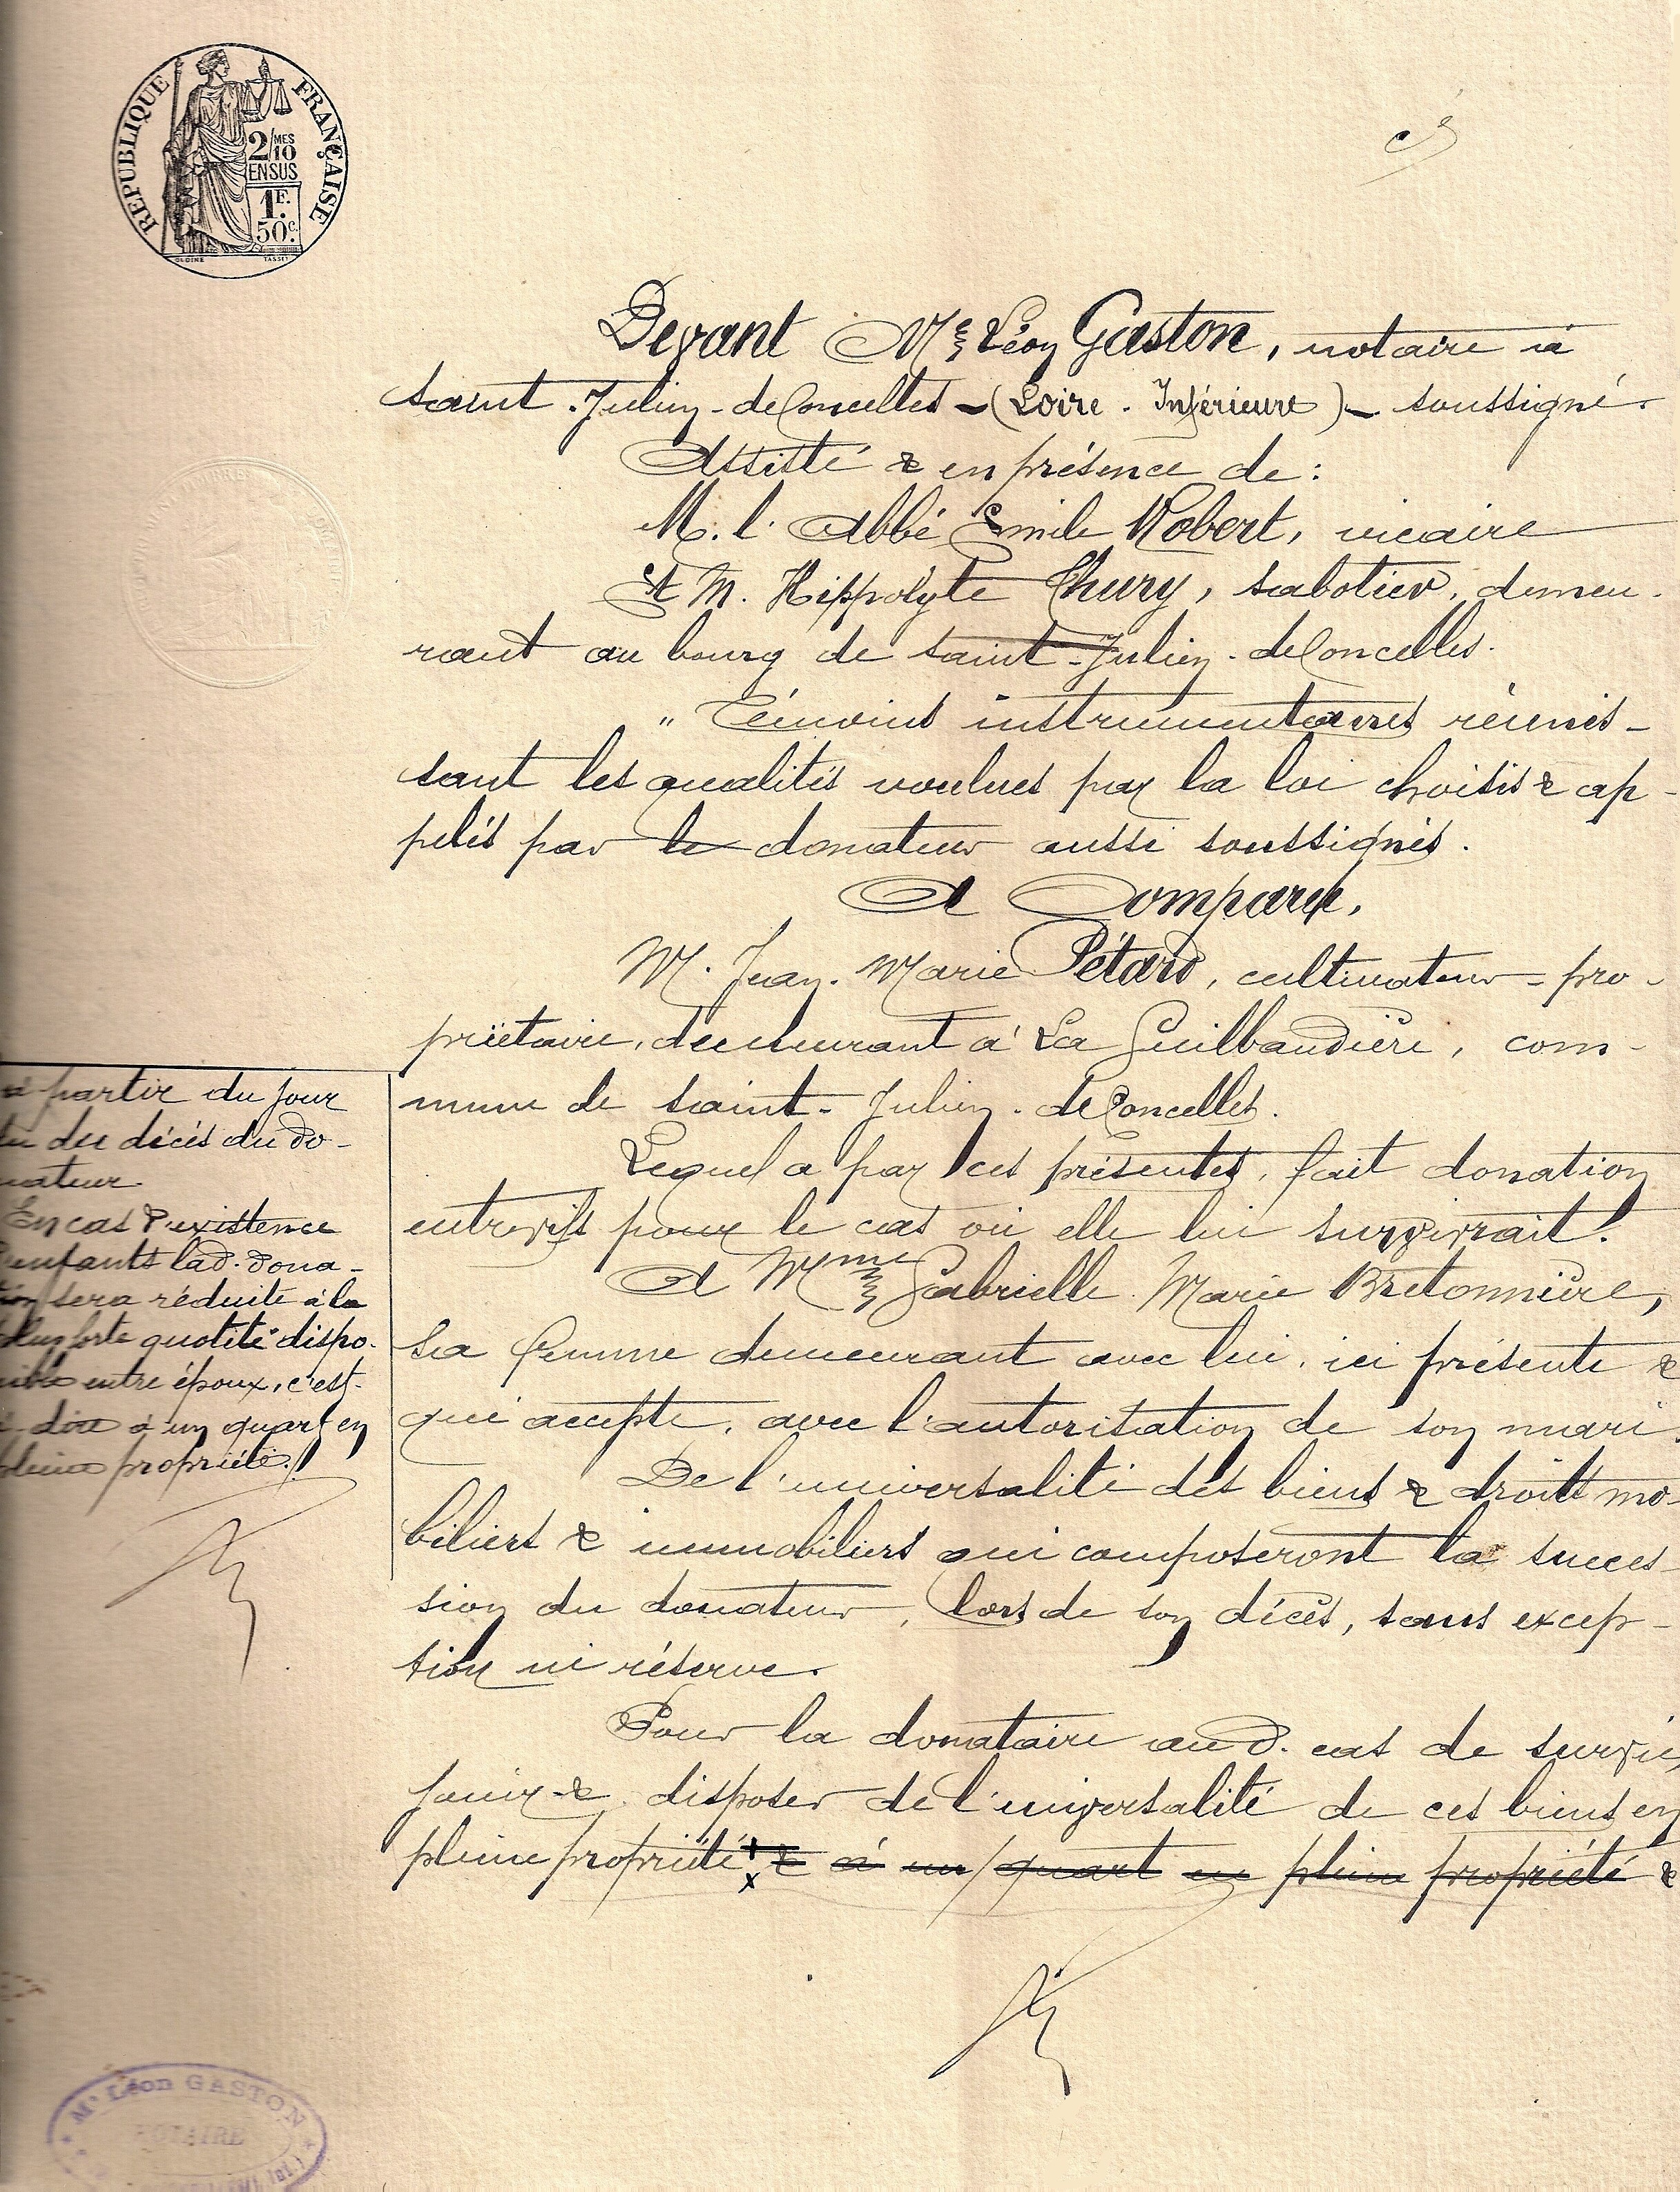 REPUBLIQUE FRANÇAISE
2/10 MES
EN SUS
1F.
50c.
Devant Me Léon Gaston, notaire à
saint-Julien-de Concelles-(Loire-Inférieure)-soussigné.
Assisté & en présence de:
M. l'Abbé Emile Robert, vicaire
Et M. Hippolyte Chury, sabotier, demeu-
rant au bourg de saint-Julien-de Concelles.
" Témoins instrumentaires réunis-
sant les qualités voulues par la loi choisis & ap-
pelés par le donateur aussi soussignés.
A Comparu,
M. Jean-Marie Pétard, cultivateur-pro-
priétaire, demeurant à La Guilbaudière, com-
mune de saint-Julien-de Concelles.
Lequel a par ces présentes, fait donation
entrevifs pour le cas où elle lui survivrait.
A Mme Gabrielle Marie Bretonnière,
sa femme demeurant avec lui, ici présente &
qui accepte, avec l'autorisation de son mari.
De l'universalité des biens & droits mo-
biliers & immobiliers qui composeront la succes-
sion du donateur, lors de son décès, sans excep-
tion ni réserve.
Pour la donataire aud. cas de survie,
jouir & disposer de l'universalité de ces biens en
pleine propriété & à un quart en pleine propriété &
à partir du jour
du décès du do-
nateur.
En cas d'existence
d'enfants lad. dona-
tion sera réduite à la
plus forte quotité dispo-
nible entre époux, c'est-
à-dire à un quart en
pleine propriété.
Me Léon GASTON
NOTAIRE